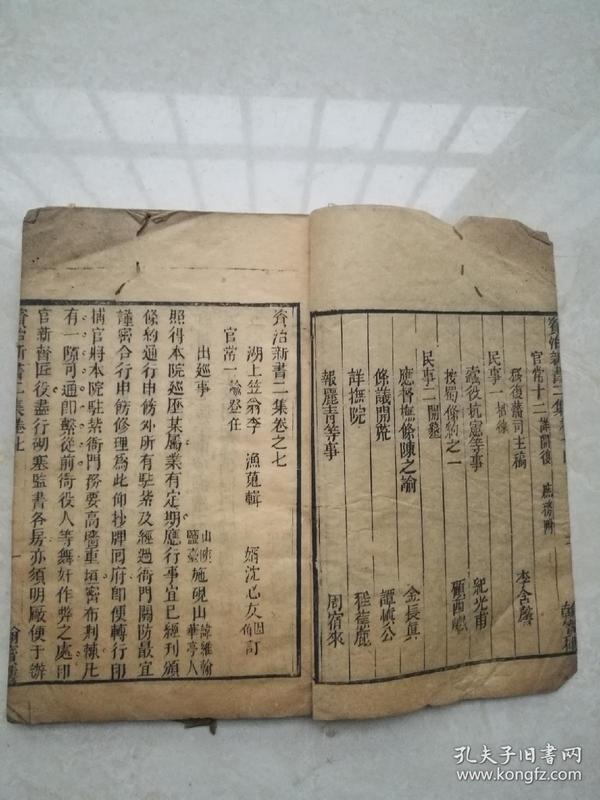 資治新書二集卷
官常十二
李含馨
民事一
蠹役抗憲等事
紀光甫
按蜀條約之一
顧西巘
民事二
開墾
應督撫條陳之諭
金長眞
條議開荒
譚愼公
詳撫院
程德鹿
報麗青等事
周宿來
資治新書二集卷之七
湖上笠翁李 漁蒐輯 婿沈心友因伯訂
官常一 諭登任
出廵事
山陜鹽臺施硯山 諱維翰 華亭人
照得本院廵歷某屬業有定期應行事宜已經刋頒
條約通行申飭外所有駐紮及經過衙門關防最宜
謹密合行申飭修理爲此仰抄牌囘府即便轉行印
捕官將本院駐紮衙門務要高墻重垣密布荆棘凡
有一隙可通即繫從前衙役人等舞奸作弊之處印
官新督匠役盡行砌塞監書各房亦須明厰便于辦
資治新書二集卷七
孔夫子旧书网
www.kongfz.com